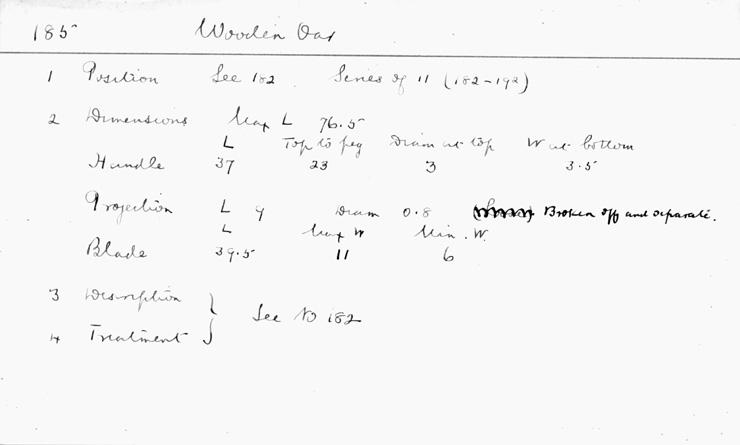 185 Wooden Oar
1 Position See 182 Series of 11 (182-192)
2 Dimensions Max L 76.5
L Top to peg Diam at top W at bottom
Handle 37 23 3 3.5
Projection L 9 Diam 0.8 Broken off and separate.
L Max W Min. W.
Blade 39.5 11 6
3 Description
See No 182
4 Treatment